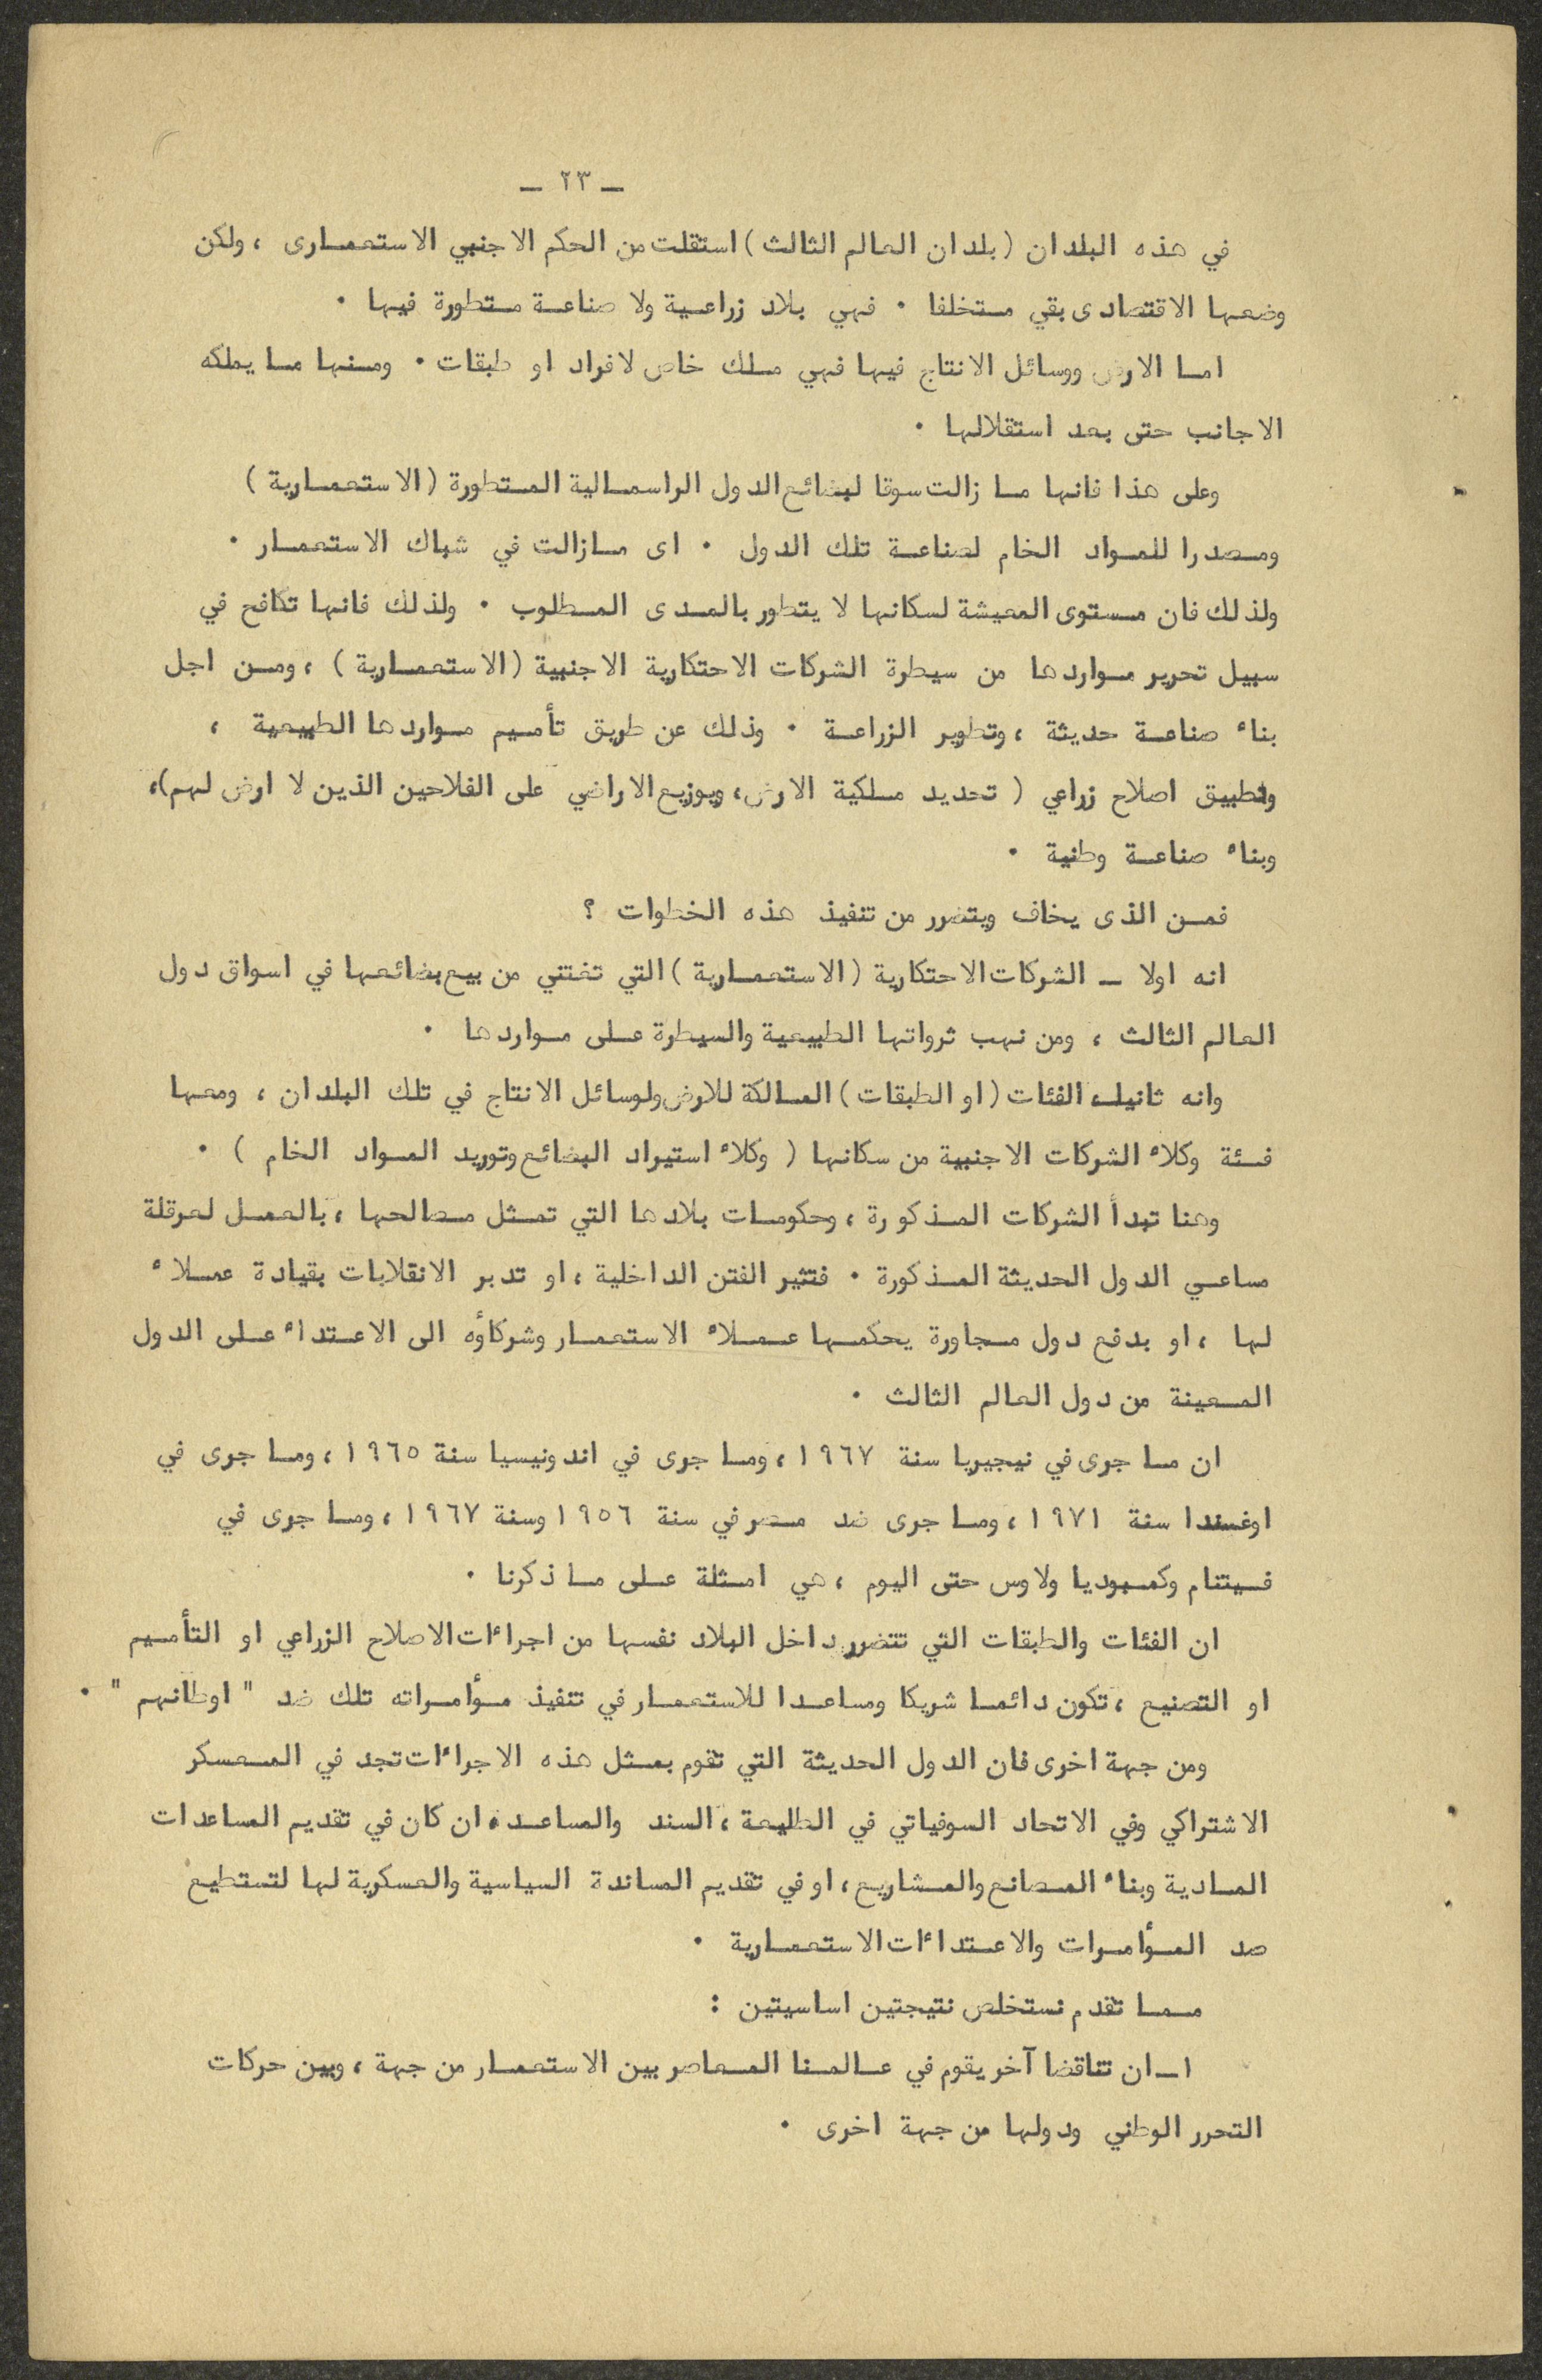 ــ ٢٣ ــ
في هذه البلدان (بلدان العالم الثالث) استقلت من الحكم الاجنبي الاستعمارى ، ولكن
وضعها الاقتصادى بقي متخلفا ٠ فهي بلاد زراعية ولا صناعة متطورة فيها ٠
اما الارض ووسائل الانتاج فيها فهي ملك خاص لافراد او طبقات ٠ ومنها ما يملكه
الاجانب حتى بعد استقلالها ٠
وعلى هذا فانها ما زالت سوقا لبضائع الدول الراسمالية المتطورة (الاستعمارية)
ومصدرا للمواد الخام لصناعة تلك الدول ٠ اى مازالت في شباك الاستعمار ٠
ولذلك فان مستوى المعيشة لسكانها لا يتطور بالمدى المطلوب ٠ ولذلك فانها تكافح في
سبيل تحرير مواردها من سيطرة الشركات الاحتكارية الاجنبية (الاستعمارية) ، ومن اجل
بناء صناعة حديثة ، وتطوير الزراعة ٠ وذلك عن طريق تأميم مواردها الطبيعية ،
وتطبيق اصلاح زراعي ( تحديد ملكية الارض، ويوزيع الاراضي على الفلاحين الذين لا ارض لهم)،
وبناء صناعة وطنية ٠
فمن الذى يخاف ويتضرر من تنفيذ هذه الخطوات ؟
انه اولا ــ الشركات الاحتكارية (الاستعمارية) التي تغتني من بيع بضائعها في اسواق دول
العالم الثالث ، ومن نهب ثرواتها الطبيعية والسيطرة على مواردها ٠
وانه ثانيا، الفئات (او الطبقات) المالكة للارض ولوسائل الانتاج في تلك البلدان ، ومعها
فئة وكلاء الشركات الاجنبية من سكانها ( وكلاء استيراد البضائع وتوريد المواد الخام ) ٠
وهنا تبدأ الشركات المذكورة ، وحكومات بلادها التي تمثل مصالحها ، بالعمل لعرقلة
مساعي الدول الحديثة المذكورة ٠ فتثير الفتن الداخلية ، او تدبر الانقلابات بقيادة عملاء
لها ، او بدفع دول مجاورة يحكمها عملاء الاستعمار وشركاؤه الى الاعتداء على الدول
المعينة من دول العالم الثالث ٠
ان ما جرى في نيجيريا سنة ١٩٦٧ ، وما جرى في اندونيسيا سنة ١٩٦٥ ، وما جرى في
اوغندا سنة ١٩٧١ ، وما جرى ضد مصر في سنة ١٩٥٦ وسنة ١٩٦٧ ، وما جرى في
فيتنام وكمبوديا ولاوس حتى اليوم ، هي امثلة على ما ذكرنا ٠
ان الفئات والطبقات التي تتضرر داخل البلاد نفسها من اجراءات الاصلاح الزراعي او التأميم
او التصنيع ، تكون دائما شريكا ومساعدا للاستعمار في تنفيذ مؤامراته تلك ضد " اوطانهم " ٠
ومن جهة اخرى فان الدول الحديثة التي تقوم بمثل هذه الاجراءات تجد في المعسكر
الاشتراكي وفي الاتحاد السوفياتي في الطليعة ، السند والمساعد، ان كان في تقديم المساعدات
المادية وبناء المصانع والمشاريع ، او في تقديم المساندة السياسية والعسكرية لها لتستطيع
صد المؤامرات والاعتداءات الاستعمارية ٠
مما تقدم نستخلص نتيجتين اساسيتين :
١ــ ان تناقضا آخر يقوم في عالمنا المعاصر بين الاستعمار من جهة ، وبين حركات
التحرر الوطني ودولها من جهة اخرى ٠